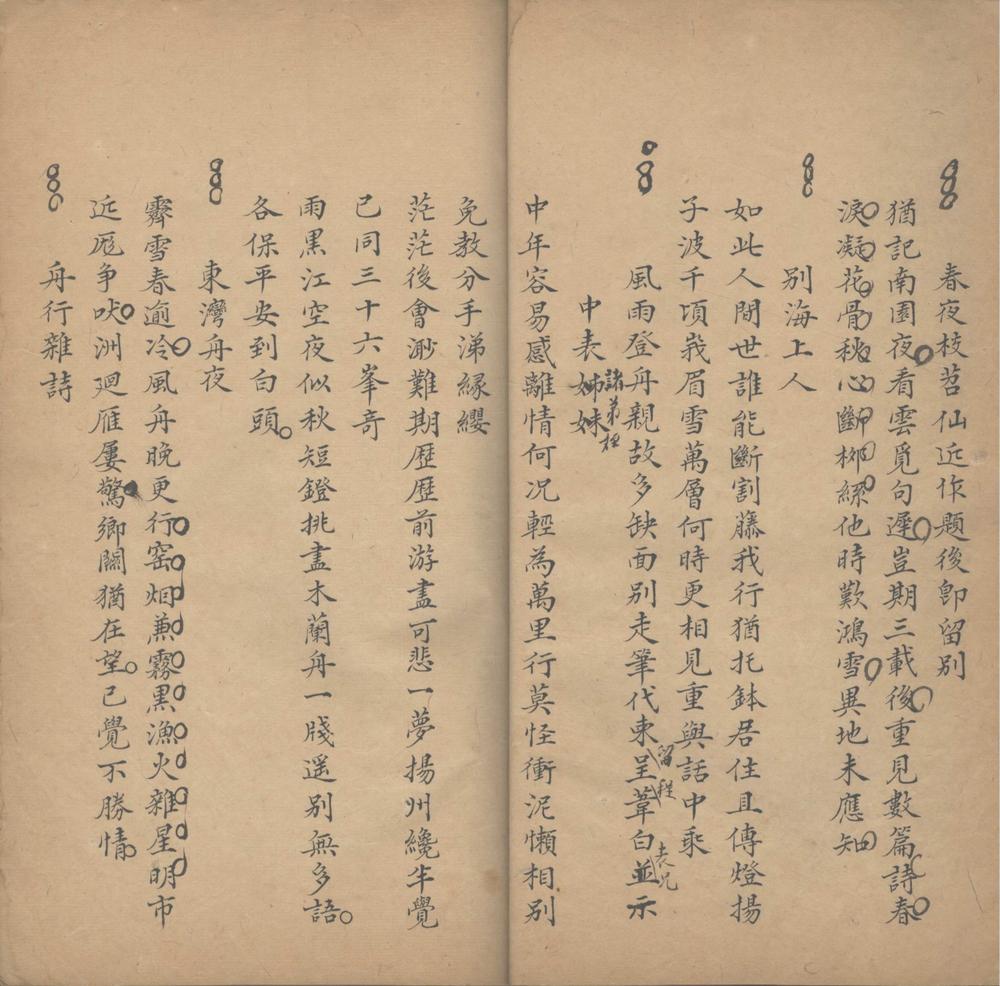 春夜枝苕仙近作題後卽留別
猶記南園夜看雲覓句遲豈期三載後重見數篇詩春
淚凝花骨秋心斷柳絲他時歎鴻雪異地未應知
別海上人
如此人間世誰能斷割藤我行猶托鉢居住且傳燈揚
子波千頃峩眉雪萬層何時更相見重與話中乘
風雨登舟親故多缺面別走筆代柬呈葦白並示
留程
表兄
中表姊妹
諸弟姪
中年容易感離情何況輕為萬里行莫怪衝泥懶相別
免教分手涕緣纓
茫茫後會渺難期歷歷前游盡可悲一夢揚州纔半覺
已同三十六峯奇
雨黑江空夜似秋短鐙挑盡木蘭舟一牋遥別無多語
各保平安到白頭
東灣舟夜
霽雪春逾冷風舟晚更行窑烟兼霧黒漁火雜星明市
近厖争吠洲廻雁屢驚鄉關猶在望已覺不勝情
舟行雜詩